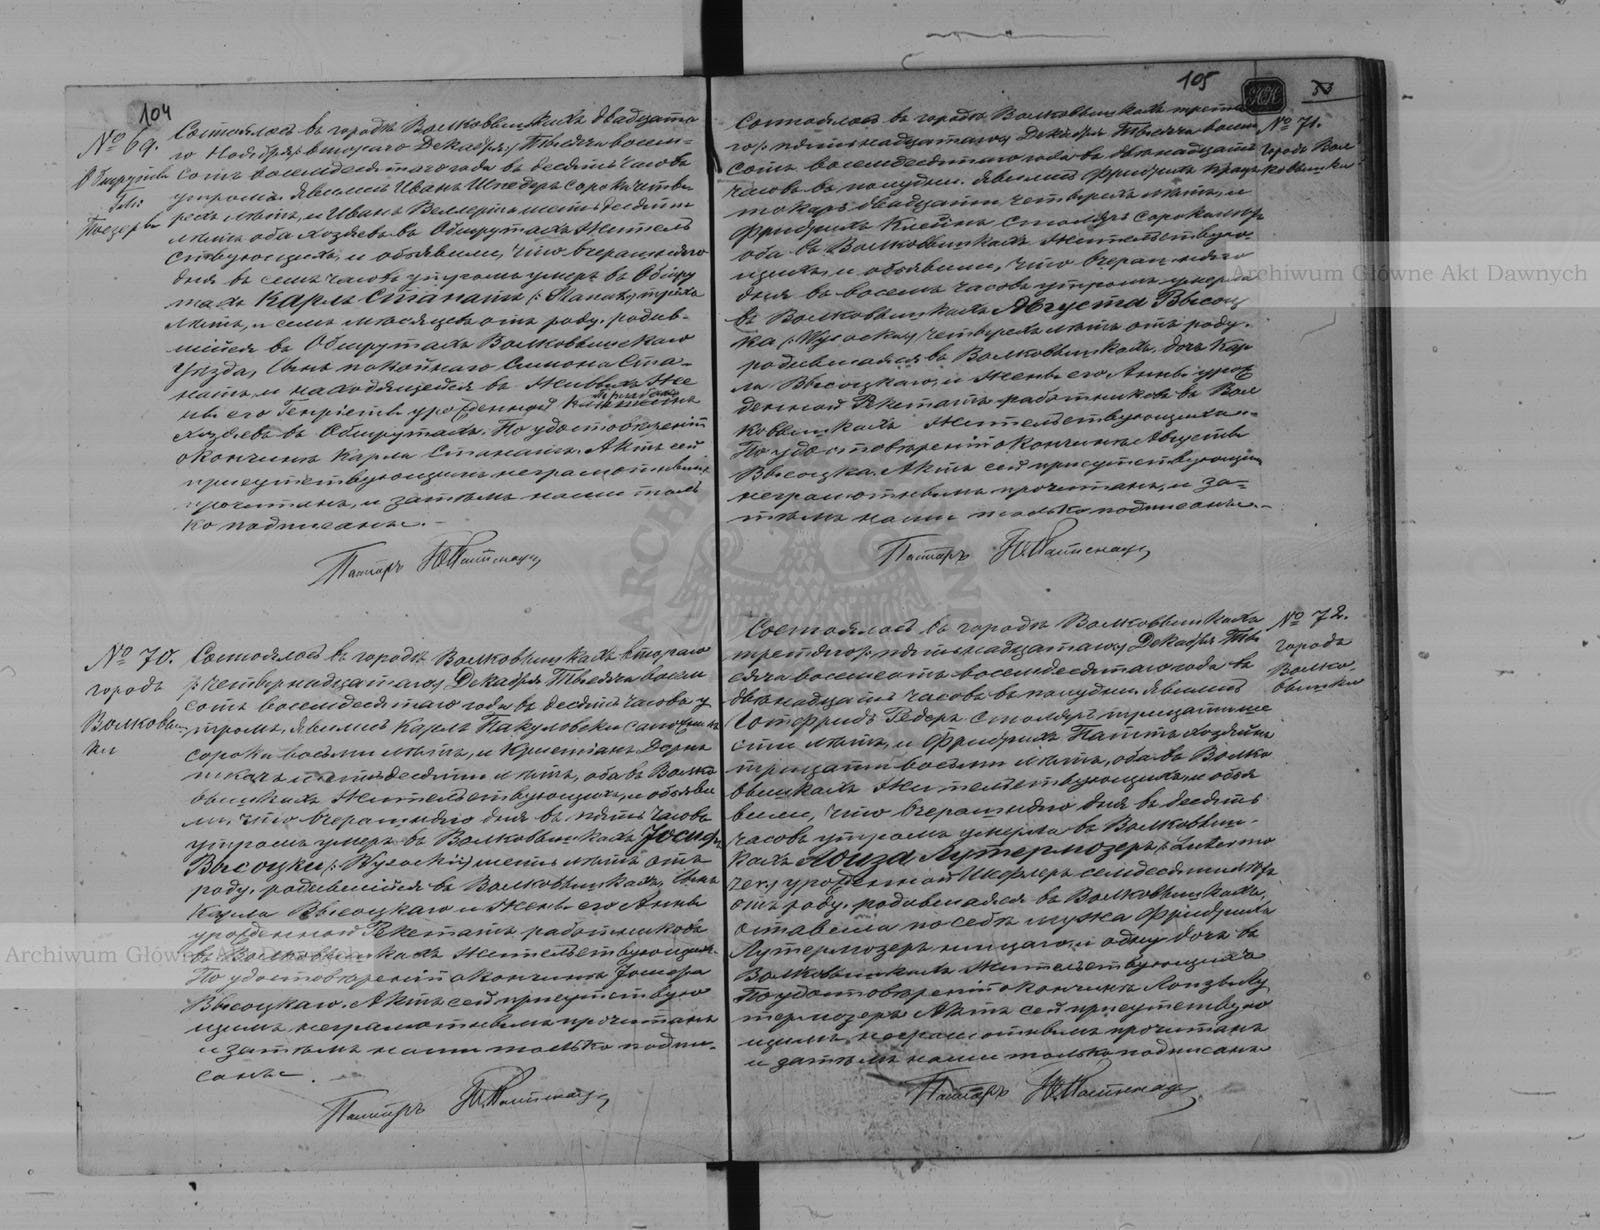 104
№ 69.
Обшрутеле
Состоялось въ городѣ Волковышкахъ двадцата
го Ноября /: втораго Декабря :/ Тысяча восем-
сотъ восемдесятаго года въ десять часовъ
утромъ. Явились Иванъ Шнедеръ сорока четы
рехъ лѣтъ, и Иванъ Веллертъ шестьдесяти
лѣтъ оба хозяева въ Обшрутахъ житель
ствующихъ, и объявили, что вчерашняго
дня въ семь часовъ утромъ умеръ въ Обшру
тахъ Карлъ Станатъ /: Stanat :/ трехъ
лѣтъ, и семь мѣсяцевъ отъ роду, родив-
шійся въ Обшрутахъ Волковышскаго
Уѣзда, сынъ покойнаго Симона Ста-
натъ, и находящейся въ живыхъ же
ны его Генріеты урожденной
хозяевъ въ Обшрутахъ. По удостовѣреніи
о кончинѣ Карла Станатъ, Актъ сей
присутствующимъ неграмотнымъ
прочитанъ, и затѣмъ нами толь
ко подписанъ.-
Пасторъ
№ 70.
городъ
Волковыш-
ки
Состоялось въ городѣ Волковышкахъ втораго
/: четырнадцатаго :/ Декабря Тысяча восем
сотъ восемдесятаго года въ десять часовъ у
тромъ. Явились Карлъ Пакуловски сапожникъ
сорока восьми лѣтъ, и Христіанъ Дорнъ
пекарь шестьдесяти лѣтъ, оба въ Волко
вышкахъ жительствующихъ, и объяви
ли, что вчерашняго дня въ пять часовъ
утромъ умеръ въ Волковышкахъ Іосифъ
Высоцки /: Wysocki :/ шесть лѣтъ отъ
роду, родившійся въ Волковышкахъ, сынъ
Карла Высоцкаго и жены его Анны
урожденной Рекетатъ работниковъ
въ Волковышкахъ жительствующихъ.
По удостовѣреніи о кончинѣ Іосифа
Высоцкаго, Актъ сей присутствую
щимъ неграмотнымъ прочитанъ
и затѣмъ нами только подпи-
санъ.
Пасторъ
105
№ 71.
городъ Вол
ковышки
Состоялось въ городѣ Волковышкахъ третья
го /: пятьнадцатаго :/ Декабря Тысяча восем
сотъ восемдесятаго года въ двѣнадцать
часовъ въ полудни. Явились Фридрихъ
токаръ двадцати четырехъ лѣтъ, и
Фридрихъ Клейнъ столяръ сорока лѣтъ
оба въ Волковышкахъ жительствую-
щихъ, и объявили, что вчерашняго
дня въ восемь часовъ утромъ умерла
въ Волковышкахъ Августа Высоц
ка /: Wysocka :/ четырехъ лѣтъ отъ роду,
родившаяся въ Волковышкахъ, дочь Кар
ла Высоцкаго, и жены его Анны урож
денной Рекетатъ работниковъ въ Вол
ковышкахъ жительствующихъ.-
По удостовѣреніи о кончинѣ Августы
Высоцка, Актъ сей присутствующимъ
неграмотнымъ прочитанъ, и за-
тѣмъ нами только подписанъ.-
Пасторъ
№ 72.
городъ
Волко-
вышки
Состоялось въ городѣ Волковышкахъ
третяго /: пятьнадцатаго :/ Декабря Ты
сяча восемсотъ восемдесятаго года въ
двѣнадцать часовъ въ полудни. Явились
Готфридъ Редеръ столяръ тридцати ше
сти лѣтъ, и Фридрихъ Паттъ хозяинъ
тридцати восьми лѣтъ, оба въ Волко
вышкахъ жительствующихъ, и объя
вили, что вчерашняго дня въ десять
часовъ утромъ умерла въ Волковыш-
кахъ Луиза Лутермозеръ
урожденной Шефлеръ семдесяти лѣтъ
отъ роду, родившаяся въ Волковышкахъ,
оставила по себѣ мужа Фридриха
Лутермозеръ нищаго, и одну дочь въ
Волковышкахъ жительствующихъ
По удостовѣреніи о кончинѣ Луизы Лу
термозеръ Актъ сей присутствую
щимъ неграмотнымъ прочитанъ
и затѣмъ нами только подписанъ
Пасторъ
Archiwum Główne Akt Dawnych
Archiwum Główne Akt Dawnych